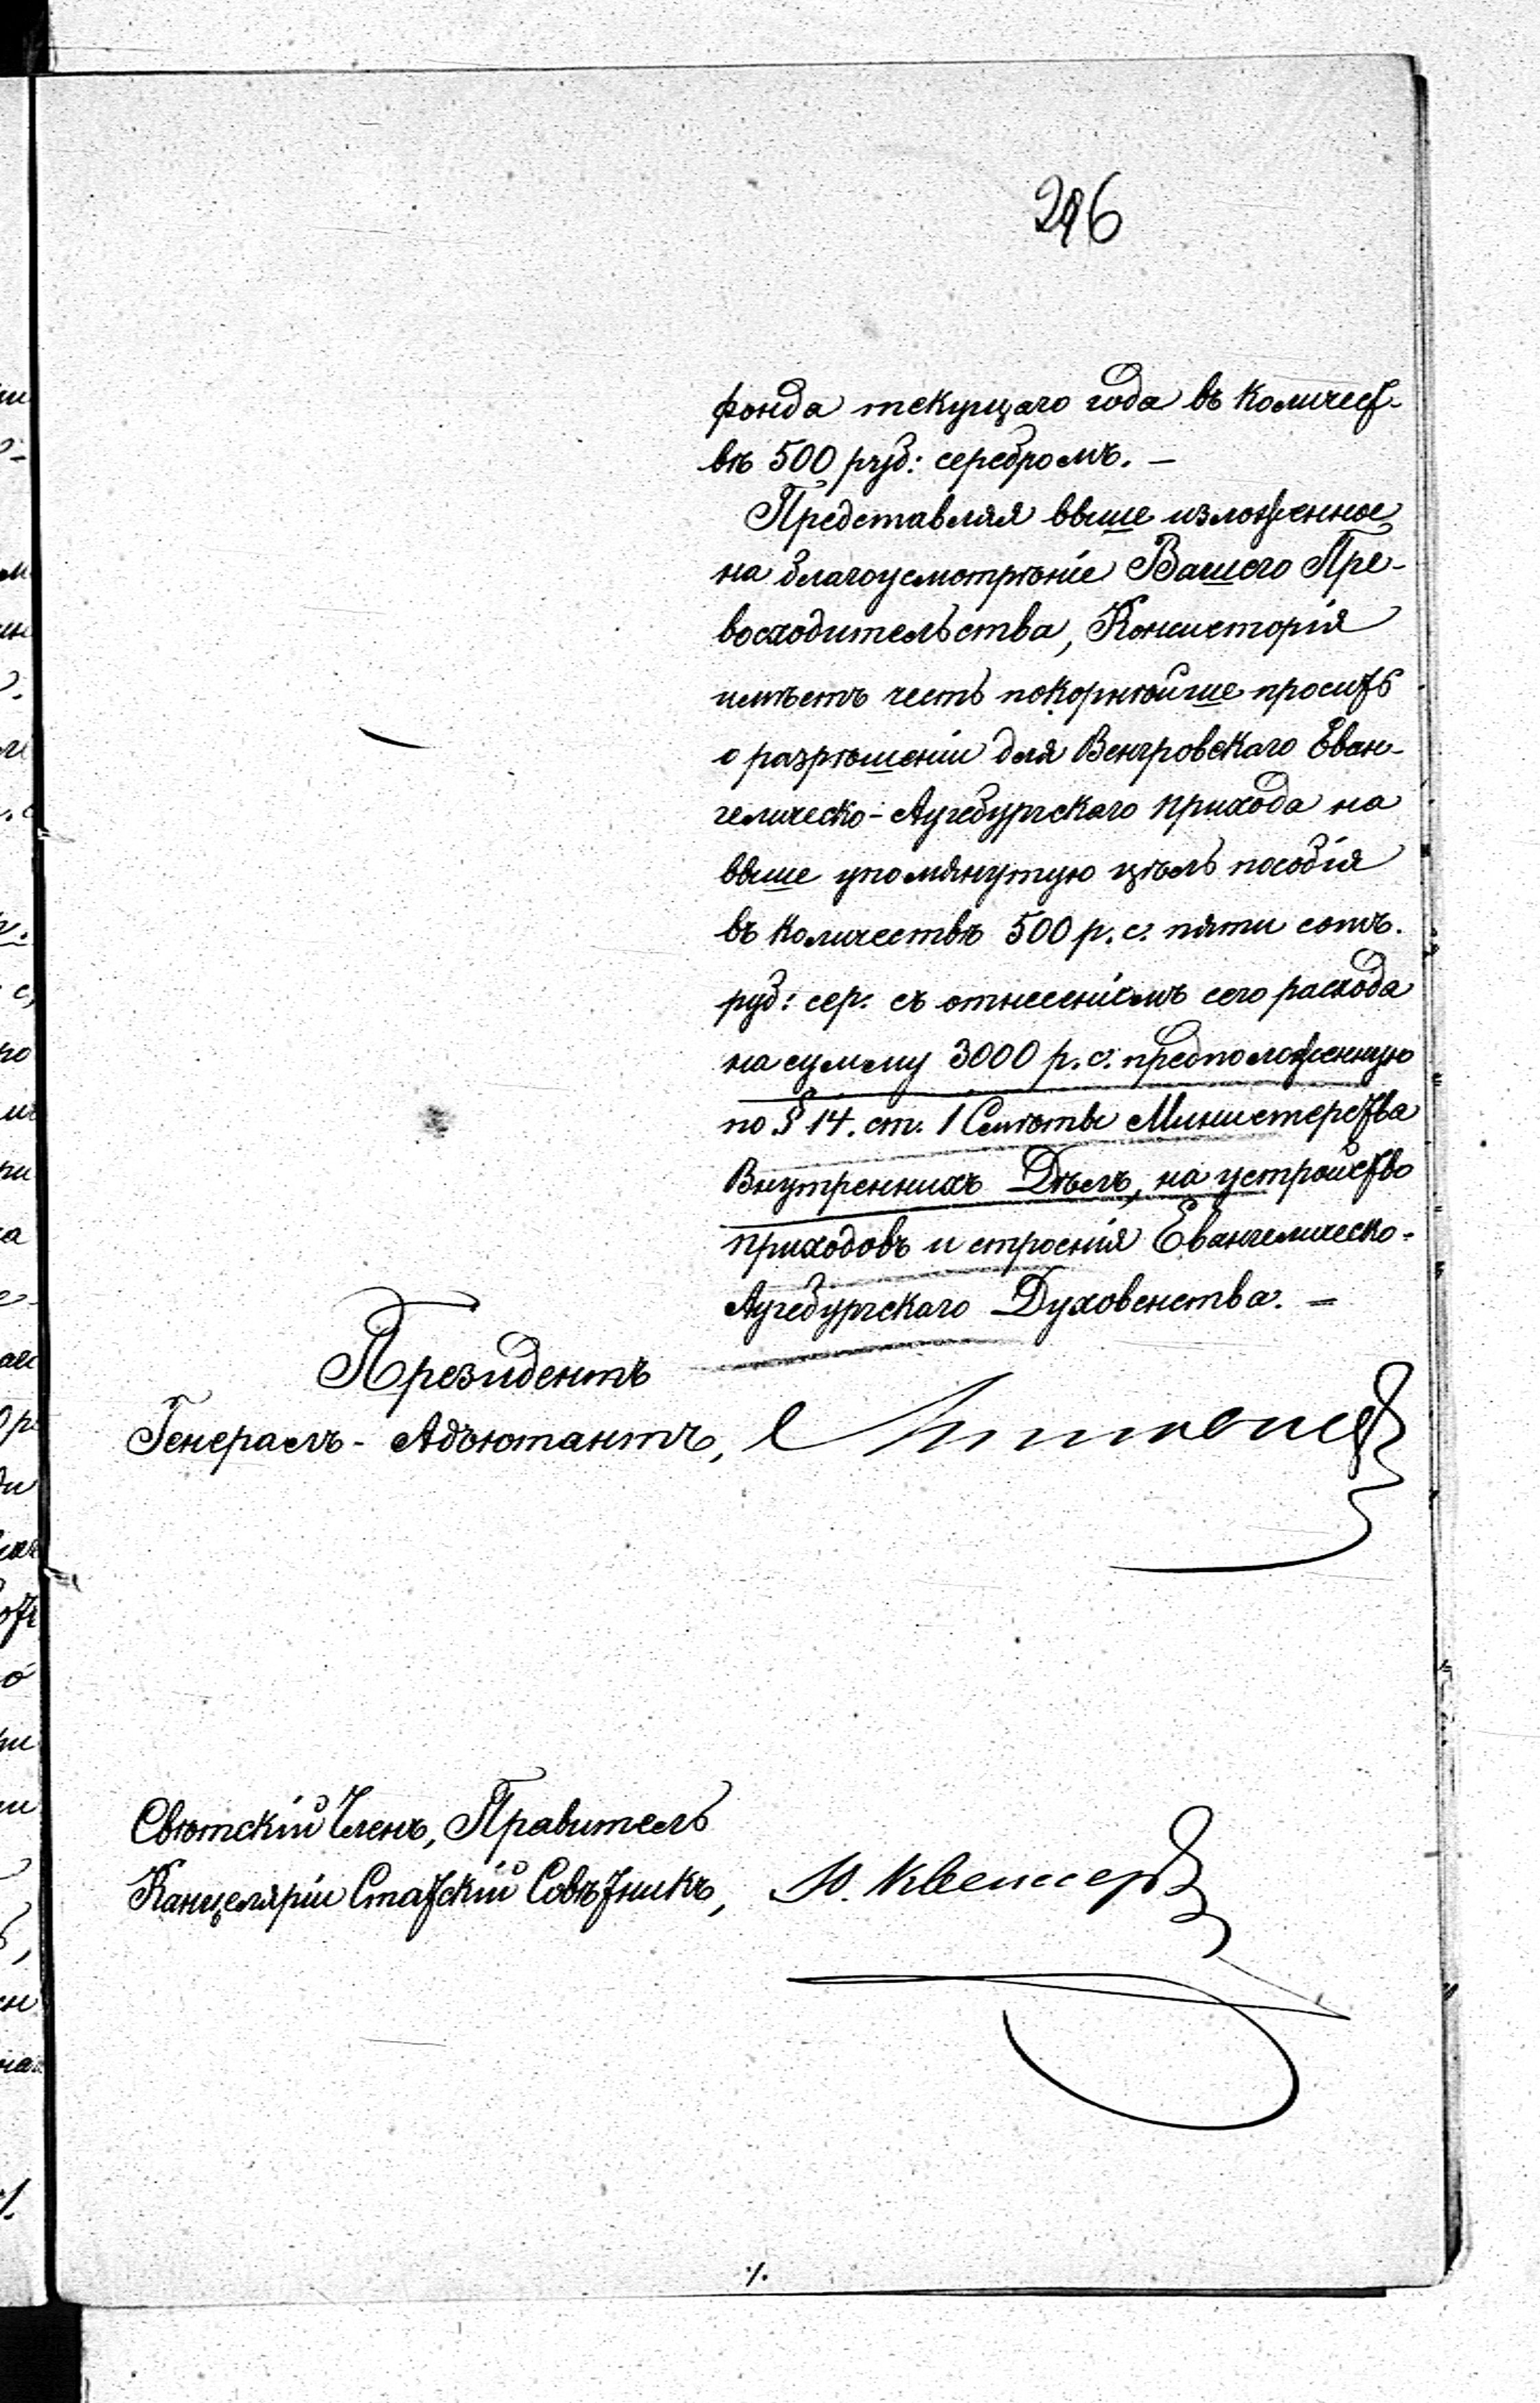 296
фонда текущаго года въ количест-
вѣ 500 руб: серебромъ. —
Представляя выше изложенное
на благоусмотрѣніе Вашего Пре-
восходительства, Консисторія
имѣетъ честь покорнѣйше просить
о разрѣшеніи для Венгровскаго Еван-
гелическо-Аугсбургскаго прихода на
выше упомянутую цѣль пособія
въ количествѣ 500 р. с. пяти сотъ.
руб: сер. съ отнесеніемъ сего расхода
на сумму 3000 р. с. предположенную
по § 14. ст. 1 Смѣты Министерства
Внутреннихъ Дѣлъ, на устройство
приходовъ и строенія Евангелическо-
Аугсбургскаго Духовенства. =
Президентъ
Генералъ-Адъютантъ,
Свѣтскій Членъ, Правитель
Канцеляріи Статскій Совѣтникъ, Ю.
./.